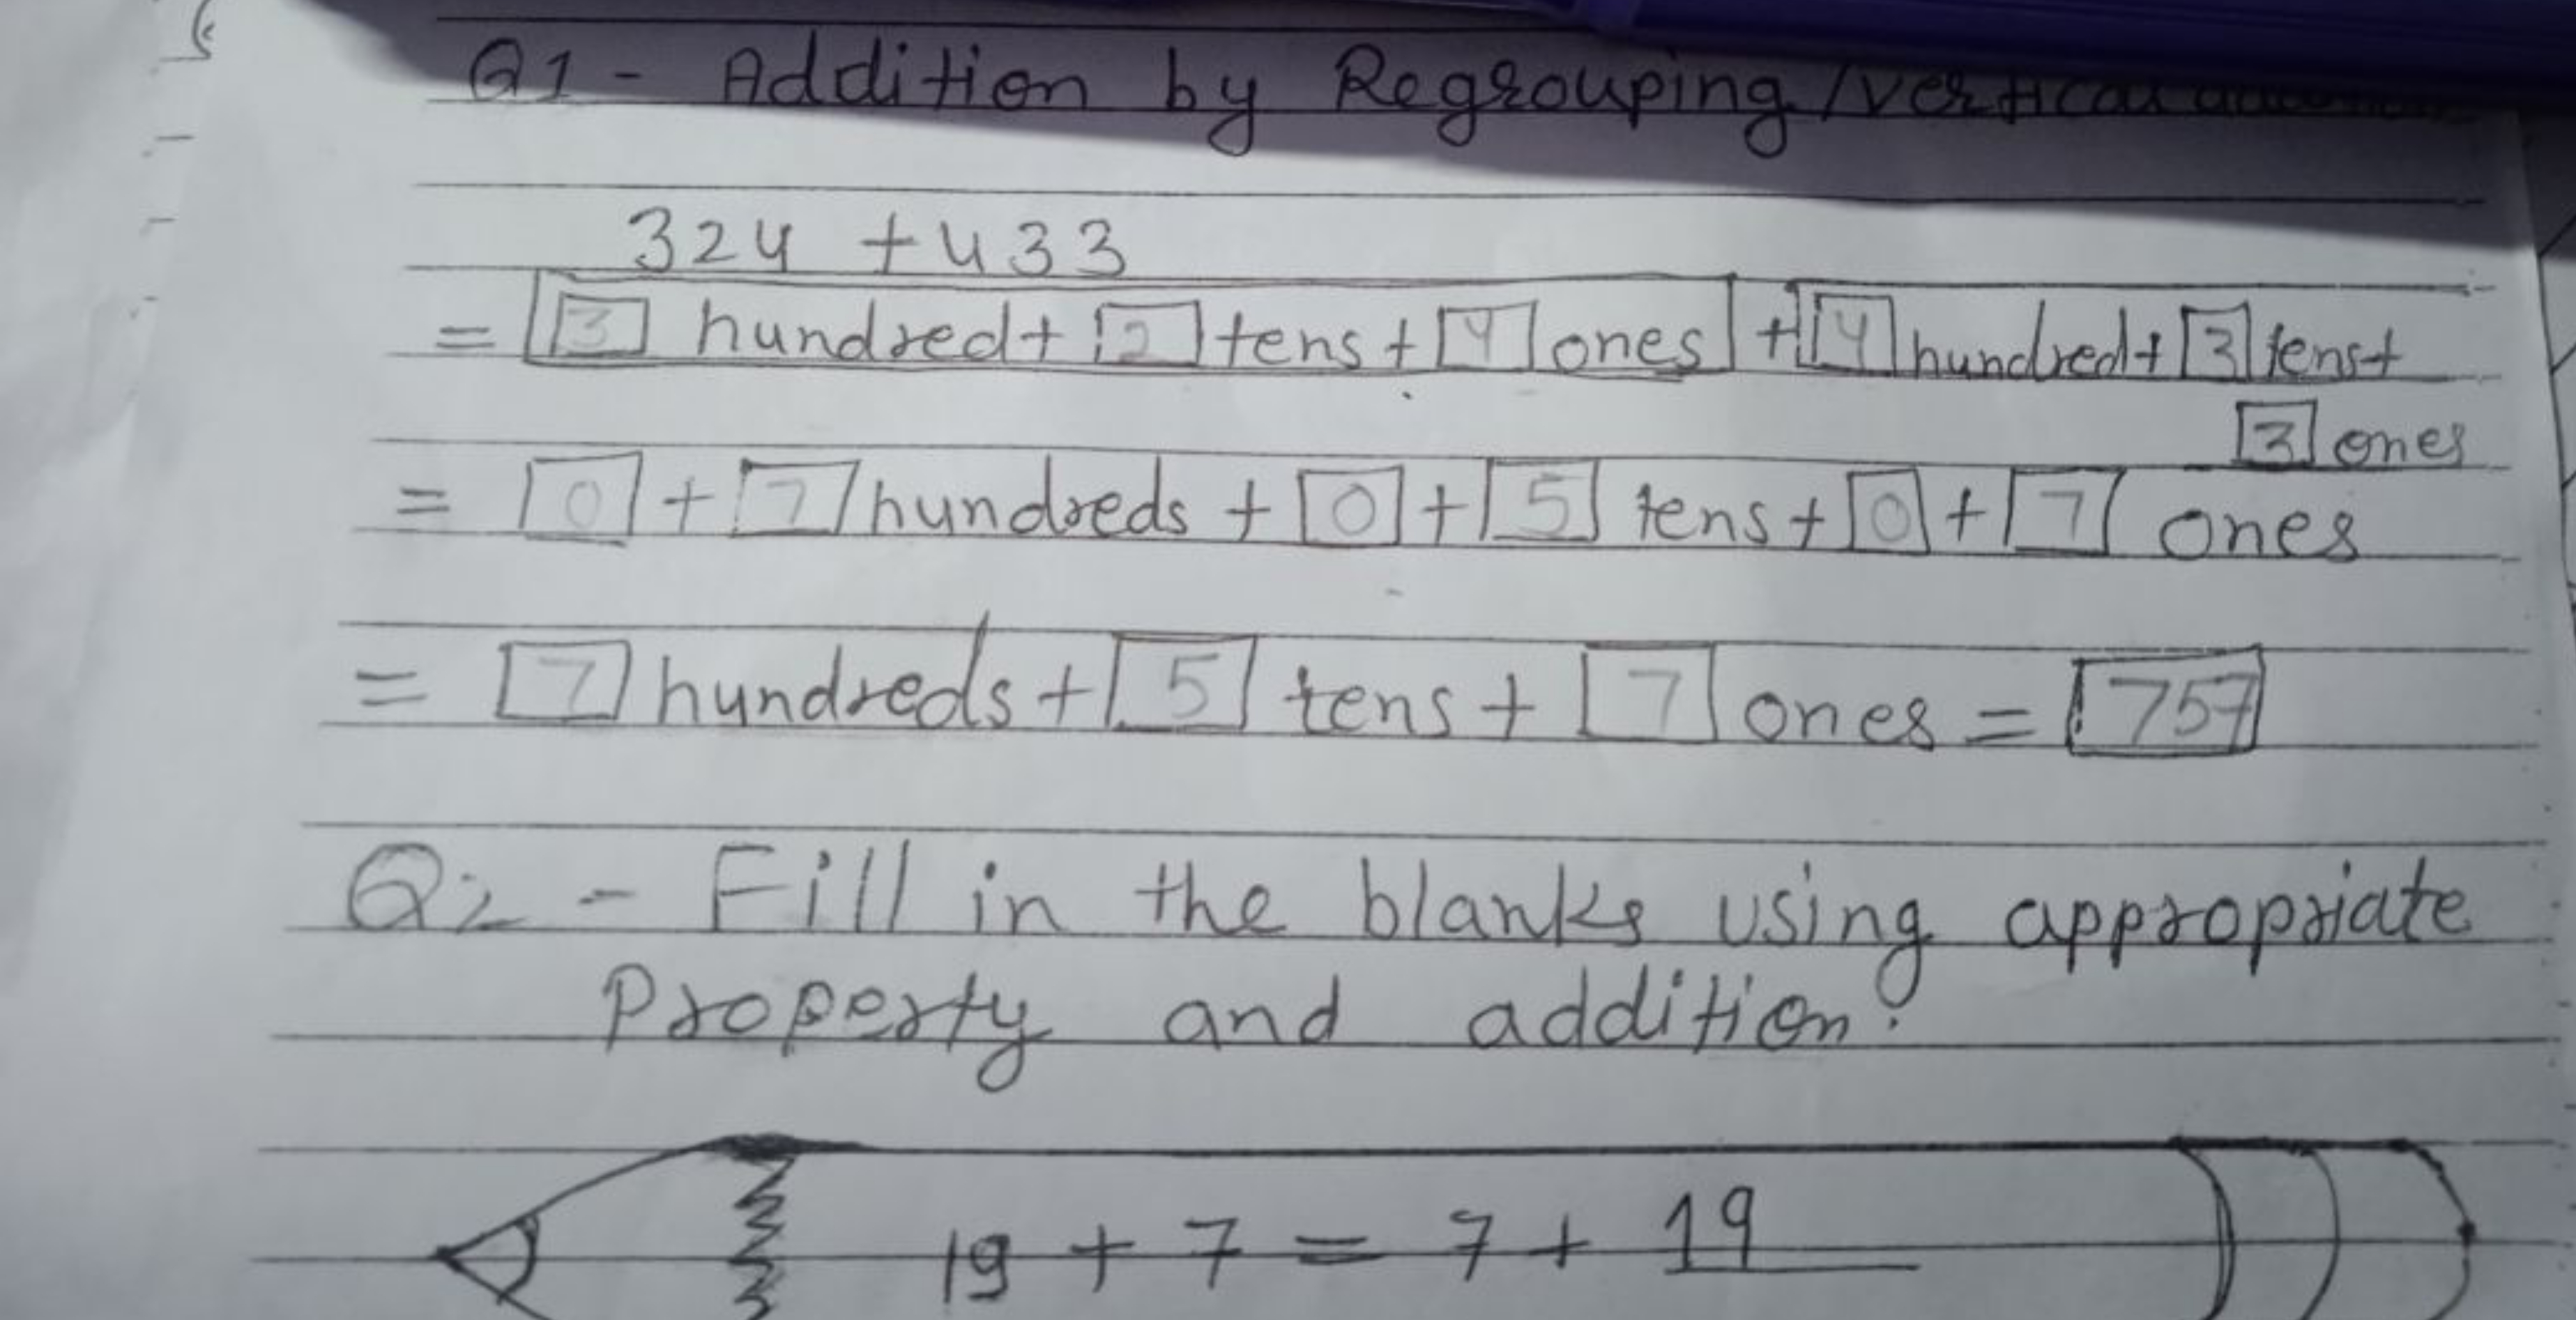 Q1 - Addition by Regrouping/vertical
324 + 433
= 3 hundred + 2 tens + 4 ones + 4 hundred + 3 tens +
3 ones
= 0 + 7 hundreds + 0 + 5 tens + 0 + 7 ones
= 7 hundreds + 5 tens + 7 ones = 757
Q2 - Fill in the blanks using appropriate
Property and addition:
19 + 7 = 7 + 19